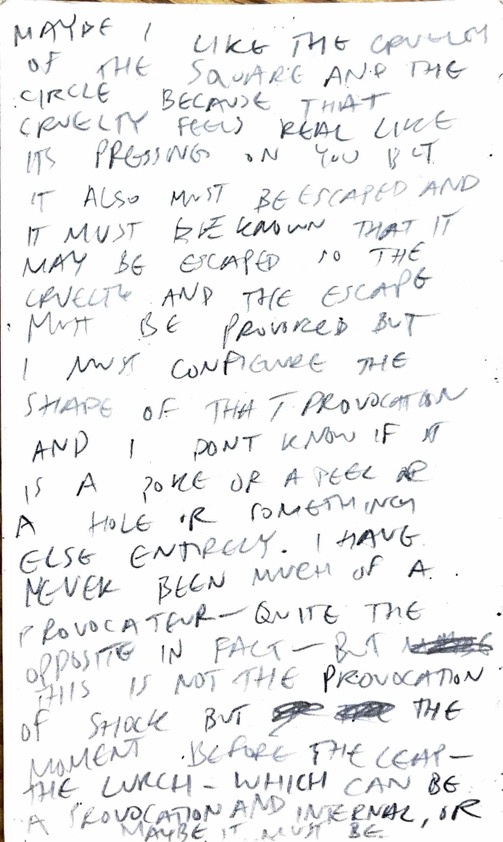 MAYBE I LIKE THE CRUELTY
OF THE SQUARE AND THE
CIRCLE BECAUSE THAT
CRUELTY FEELS REAL LIKE
ITS PRESSING ON YOU BUT
IT ALSO MUST BE ESCAPED AND
IT MUST BE KNOWN THAT IT
MAY BE ESCAPED SO THE
CRUELTY AND THE ESCAPE
MUST BE PROVOKED BUT
I MUST CONFIGURE THE
SHAPE OF THAT PROVOCATION
AND I DONT KNOW IF IT
IS A POKE OR A PEEL OR
A HOLE OR SOMETHING
ELSE ENTIRELY. I HAVE
NEVER BEEN MUCH OF A
PROVOCATEUR — QUITE THE
OPPOSITE IN FACT — BUT
THIS IS NOT THE PROVOCATION
OF SHOCK BUT THE
MOMENT BEFORE THE LEAP —
THE LURCH — WHICH CAN BE
A PROVOCATION AND INTERNAL, OR
MAYBE IT MUST BE